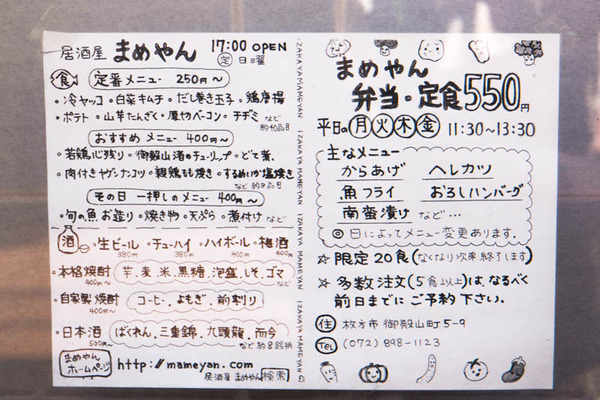 居酒屋 まめやん 17:00 OPEN
定 日曜
食 定番メニュー 250円～
・冷ヤッコ ・白菜キムチ ・だし巻き玉子 ・鶏唐揚
・ポテト ・山芋たんざく ・厚切ベーコン ・チヂミ など
約40品目
おすすめ メニュー 400円～
・若鶏心残り ・御殿山渚のチューリップ ・どて煮、
・肉付きヤゲンナンコツ ・親鶏もも焼き ・するめいか塩焼き
など約8品目
その日 一押しのメニュー 400円～
・旬の魚 お造り ・焼き物 ・天ぷら ・煮付け など
酒 ・生ビール ・チューハイ ・ハイボール ・梅酒
380円 380円 400円 400円
・本格焼酎 芋、麦、米、黒糖、泡盛、しそ、ゴマ
400円～ など
・自家製焼酎 コーヒー、よもぎ、前割り
400円～
・日本酒 ばくれん、三重錦、九頭龍、而今
500円～ など約8銘柄
まめやんホームページ http://mameyan.com
居酒屋 まめやん 検索
IZAKAYA MAMEYAN IZAKAYA MAMEYAN IZAKAYA MAMEYAN IZAKAYA MAMEYAN
まめやん
弁当・定食550円
平日の月火木金 11:30～13:30
主なメニュー
からあげ ヘレカツ
魚フライ おろしハンバーグ
南蛮漬け など…
◎日によってメニュー変更あります。
☆ 限定20食（なくなり次第終了します）
☆ 多数注文（5食以上）は、なるべく
前日までに ご予約 下さい。
住 枚方市 御殿山町 5-9
TEL (072) 898-1123